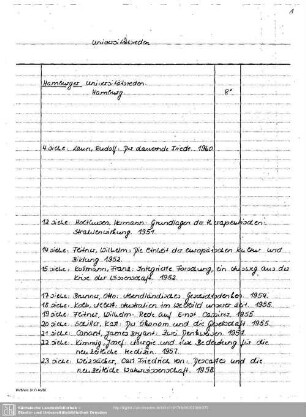 1
Universitätsreden
Hamburger Universitätsreden.
Hamburg. 8°
4 siehe: Laun, Rudolf: Die dauernde Friede. 1950
12 siehe: Holthusen, Hermann: Grundlagen der therapeutischen
Strahlenwirkung. 1951.
14 siehe: Flitner, Wilhelm: Die Einheit der europäischen Kultur und
Bildung. 1952.
15 siehe: Kollmann, Franz: Integrierte Forschung, ein Ausweg aus der
Krise der Wissenschaft. 1952.
17 siehe: Brunner, Otto: Abendländisches Geschichtsdenken. 1954.
18 siehe: Kolb, Albert: Australien im Weltbild unserer Zeit. 1955.
19 siehe: Flitner, Wilhelm: Rede auf Ernst Cassirer. 1955
20 siehe: Schiller, Karl: Der Ökonom und die Gesellschaft. 1955.
21 siehe: Conant, James Bryant: Zwei Denkweisen. 1957.
22 siehe: Kimmig, Josef: Allergie und ihre Bedeutung für die
neuzeitliche Medizin. 1957.
23 siehe: Weizsäcker, Carl Friedrich von: Descartes und die
neuzeitliche Naturwissenschaft. 1958.